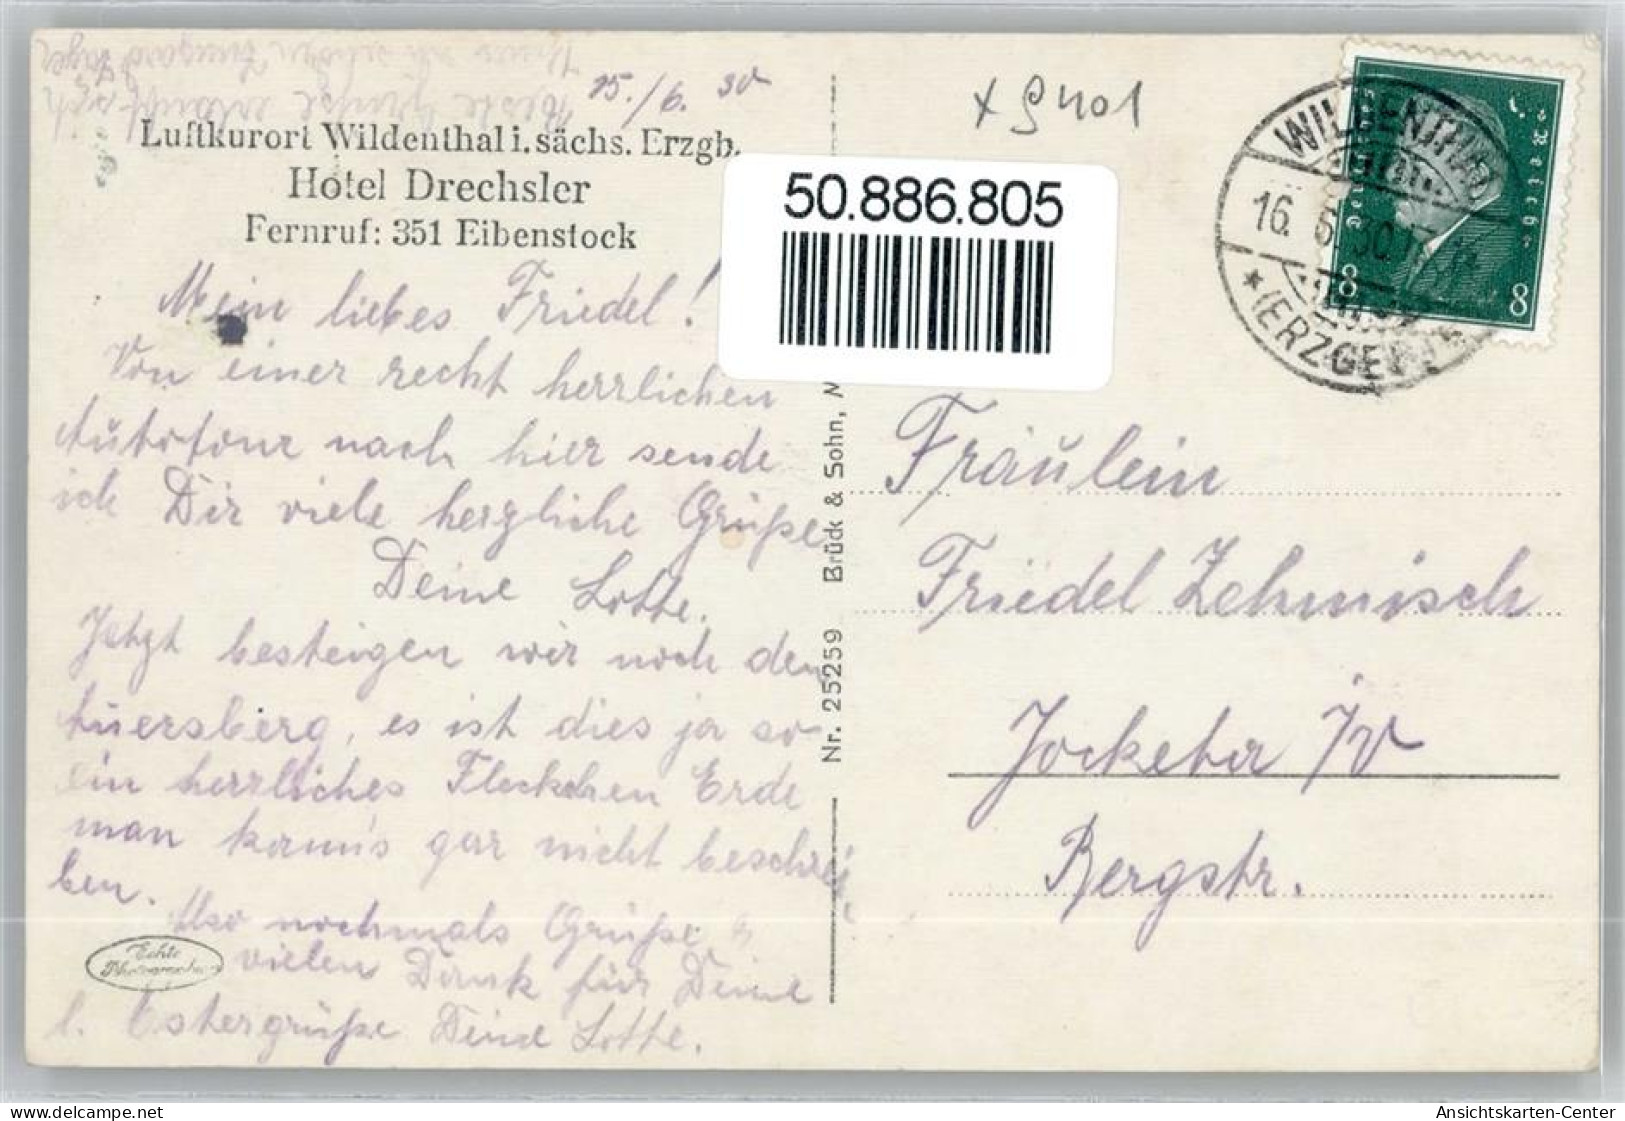 15./6. 30
x 9401
Luftkurort Wildenthal i. sächs. Erzgb.
Hotel Drechsler
Fernruf: 351 Eibenstock
50.886.805
WILDENTHAL
16. 6. 30. 17
* (ERZGEB
Deutsches Reich
8 8
Mein liebes Friedel!
Von einer recht herrlichen
Autotour nach hier sende
ich Dir viele herzliche Grüße
Deine Lotte.
Jetzt besteigen wir noch den
Auersberg, es ist dies ja so
ein herrliches Fleckchen Erde
man kann's gar nicht beschrei-
ben.
Also nochmals Grüße
vielen Dank für Deine
l. Ostergrüße Deine Lotte.
Echte
Photographie
Nr. 25259 Brück & Sohn, M
Fräulein
Friedel Zehmisch
Jocketa i/V
Bergstr.
delcampe.net
Ansichtskarten-Center